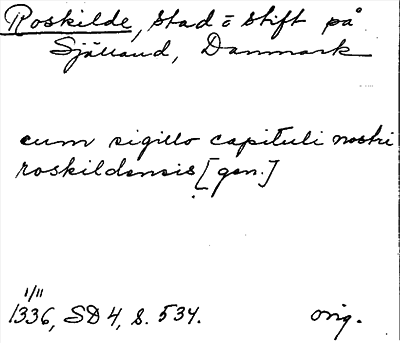 Roskilde, stad o stift på
Själland, Danmark
cum sigillo capituli nostri
roskildensis [gen.]
1/11
1336, SD 4, s. 534.
orig.